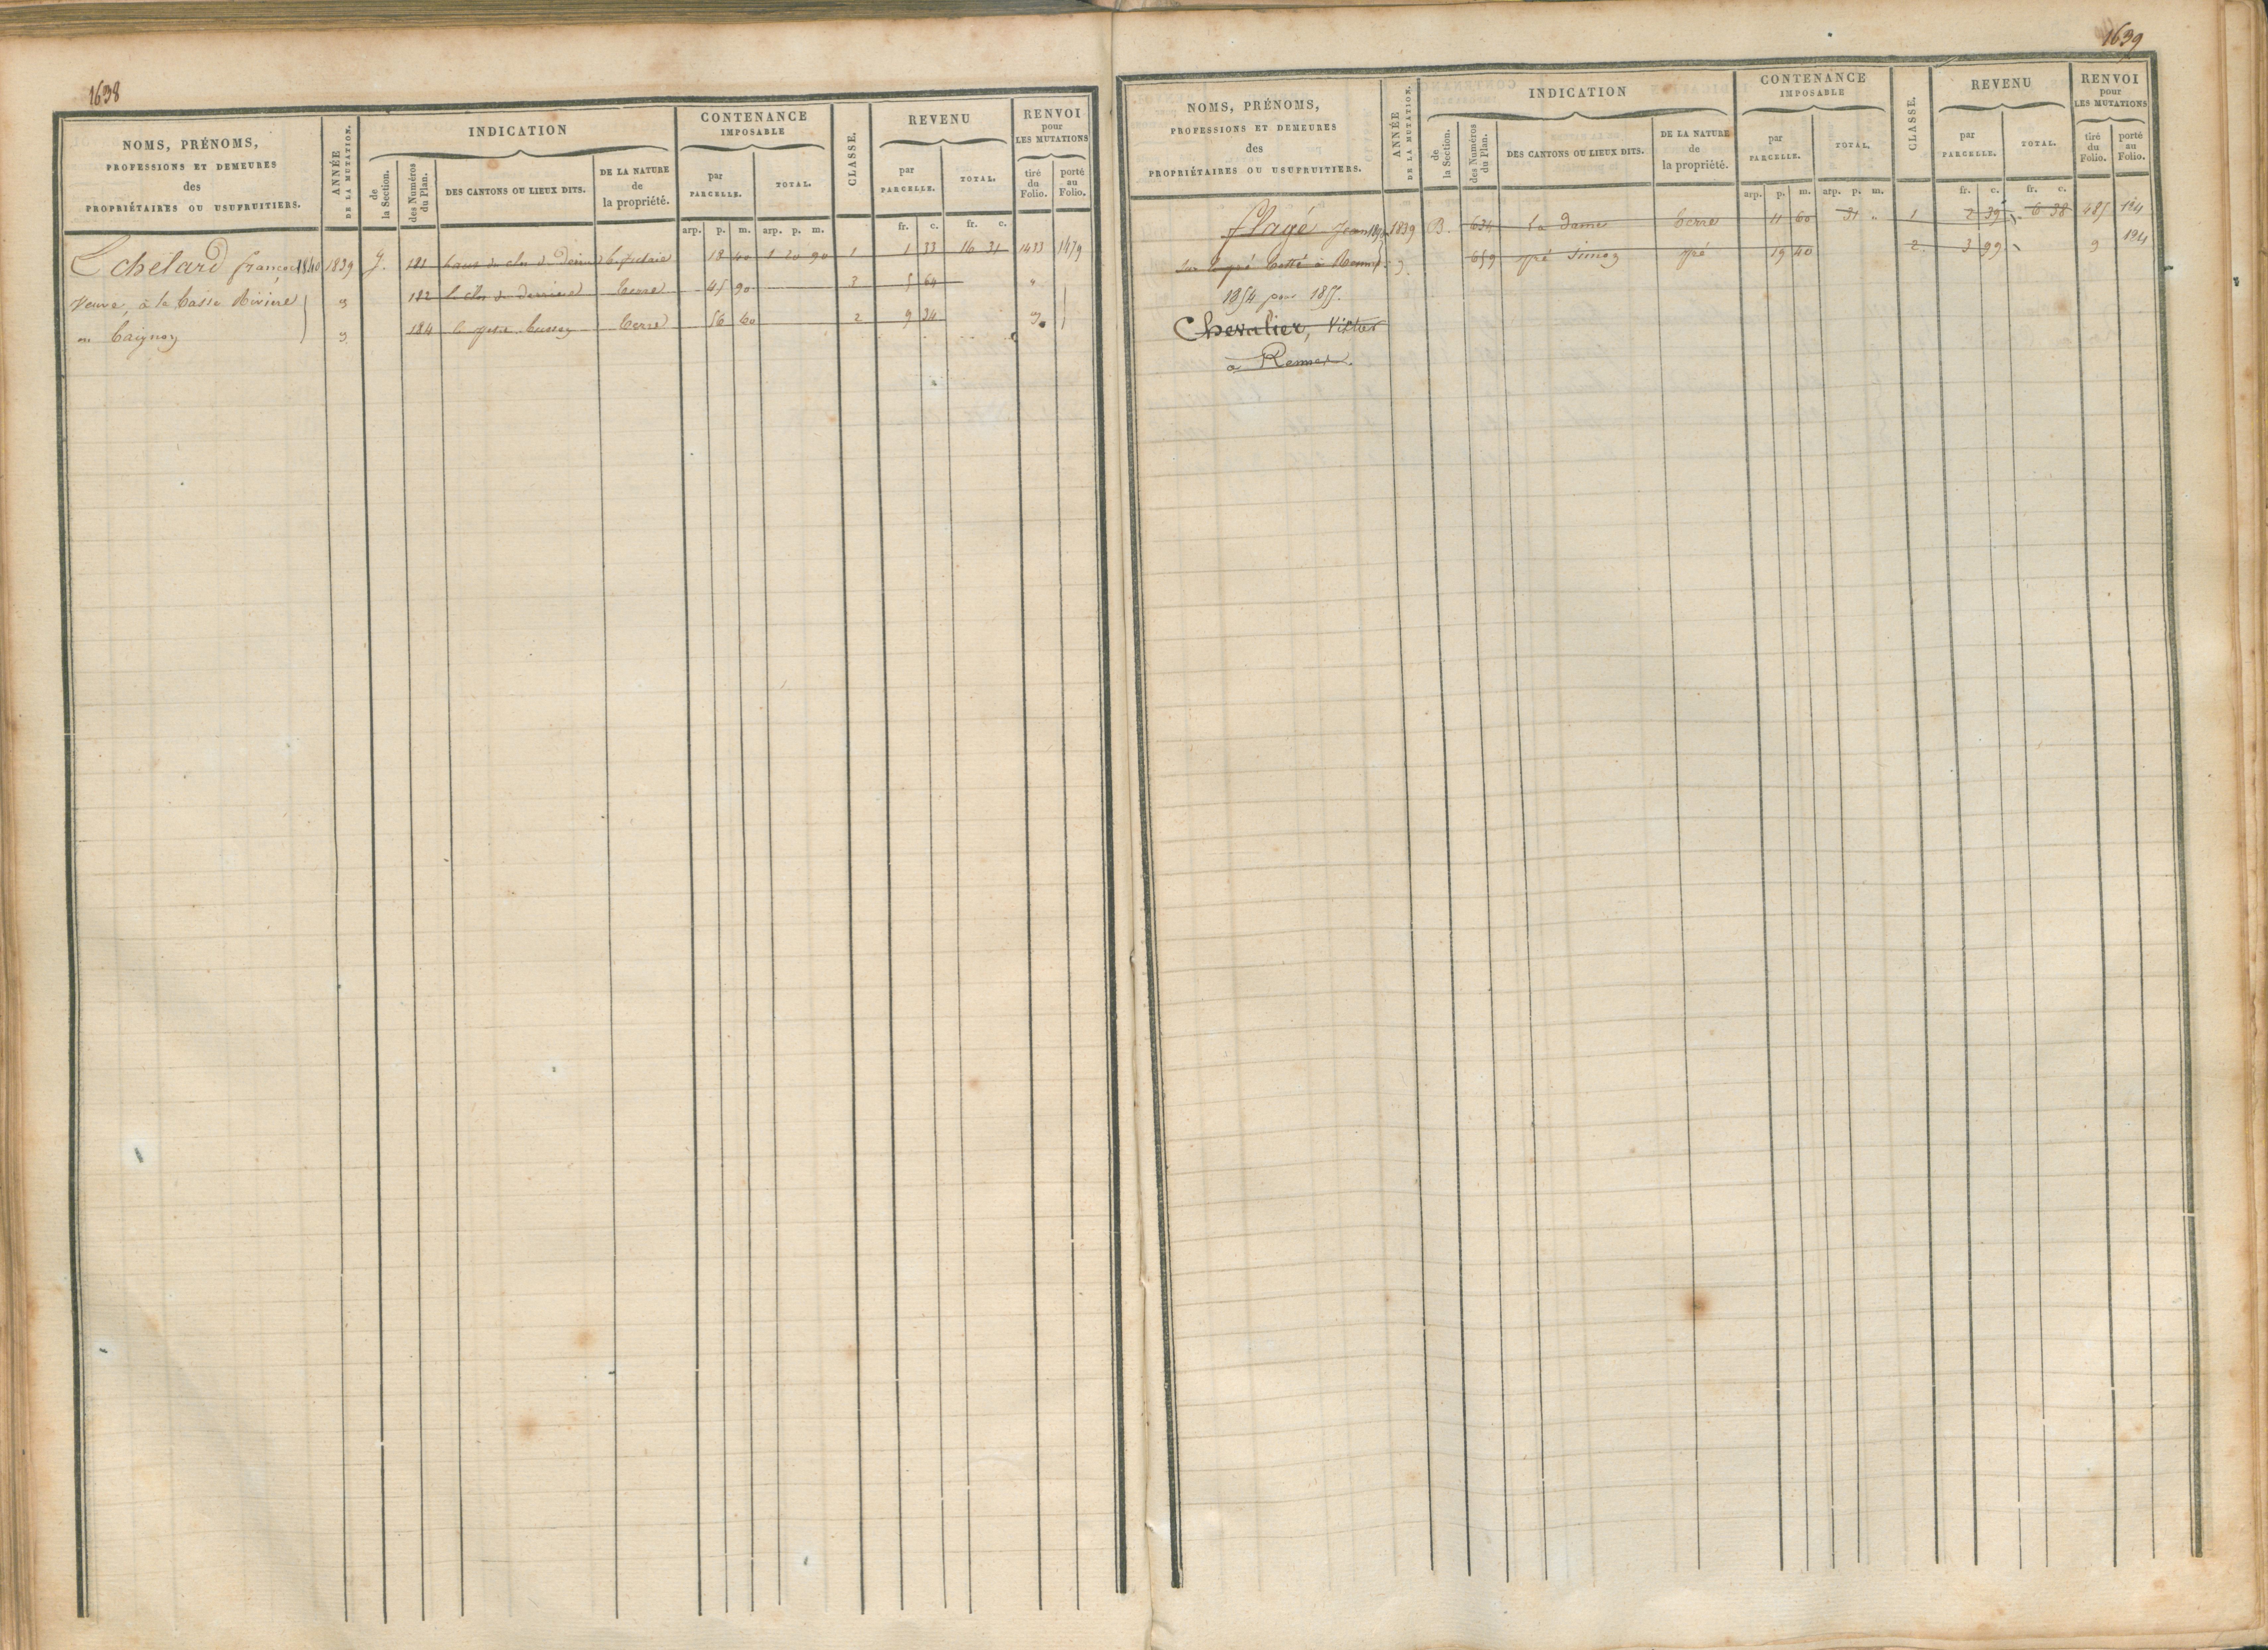 1638
NOMS, PRÉNOMS,
PROFESSIONS ET DEMEURES
des
PROPRIÉTAIRES OU USUFRUITIERS.
ANNÉE
DE LA MUTATION.
INDICATION
de
la Section.
des Numéros
du Plan.
DES CANTONS OU LIEUX DITS.
DE LA NATURE
de
la propriété.
CONTENANCE
IMPOSABLE
par
PARCELLE.
TOTAL.
CLASSE.
REVENU
par
PARCELLE.
TOTAL.
RENVOI
pour
LES MUTATIONS
tiré
du
Folio.
porté
au
Folio.
arp. p. m. arp. p. m. fr. c. fr. c.
Echelard françois 1840 1839 G. 181 haut du clos de 18 40 1 20 90 1 1 33 16 31 1433 1479
Veuve, à la basse Rivière 182 le clos de derriere terre 45 90 3 5 64 "
184 le petit terre 56 60 2 9 34
1639
NOMS, PRÉNOMS,
PROFESSIONS ET DEMEURES
des
PROPRIÉTAIRES OU USUFRUITIERS.
ANNÉE
DE LA MUTATION.
INDICATION
de
la Section.
des Numéros
du Plan.
DES CANTONS OU LIEUX DITS.
DE LA NATURE
de
la propriété.
CONTENANCE
IMPOSABLE
par
PARCELLE.
TOTAL.
CLASSE.
REVENU
par
PARCELLE.
TOTAL.
RENVOI
pour
LES MUTATIONS
tiré
du
Folio.
porté
au
Folio.
arp. p. m. arp. p. m. fr. c. fr. c.
flagé Jean 1839 B. 634 la dame terre 11 60 31 " 1 2 39 6 38 485 124
sur le pré à Rennes 659 pré Simon pré 19 40 2 3 99 124
1854 pour 1855.
Chevalier, Victor
à Rennes